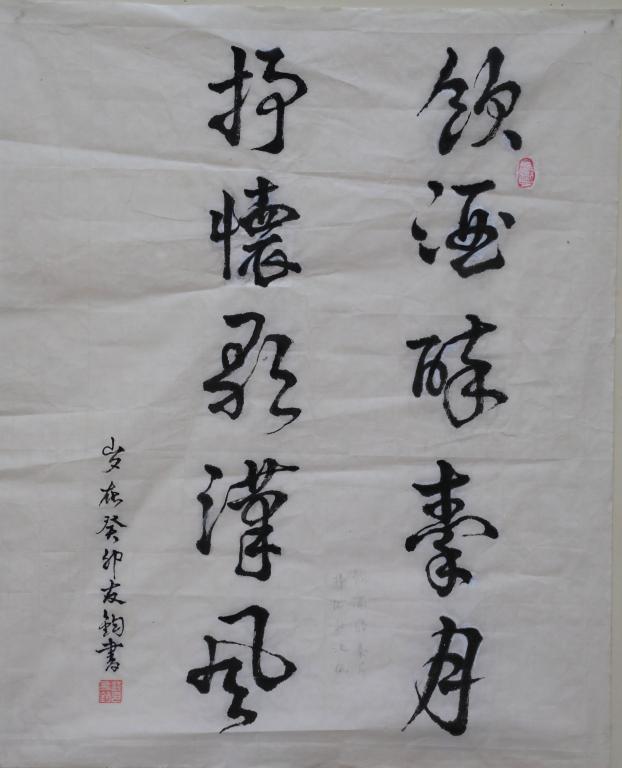 飲酒醉秦月
抒懷歌漢風
岁在癸卯友鈞書